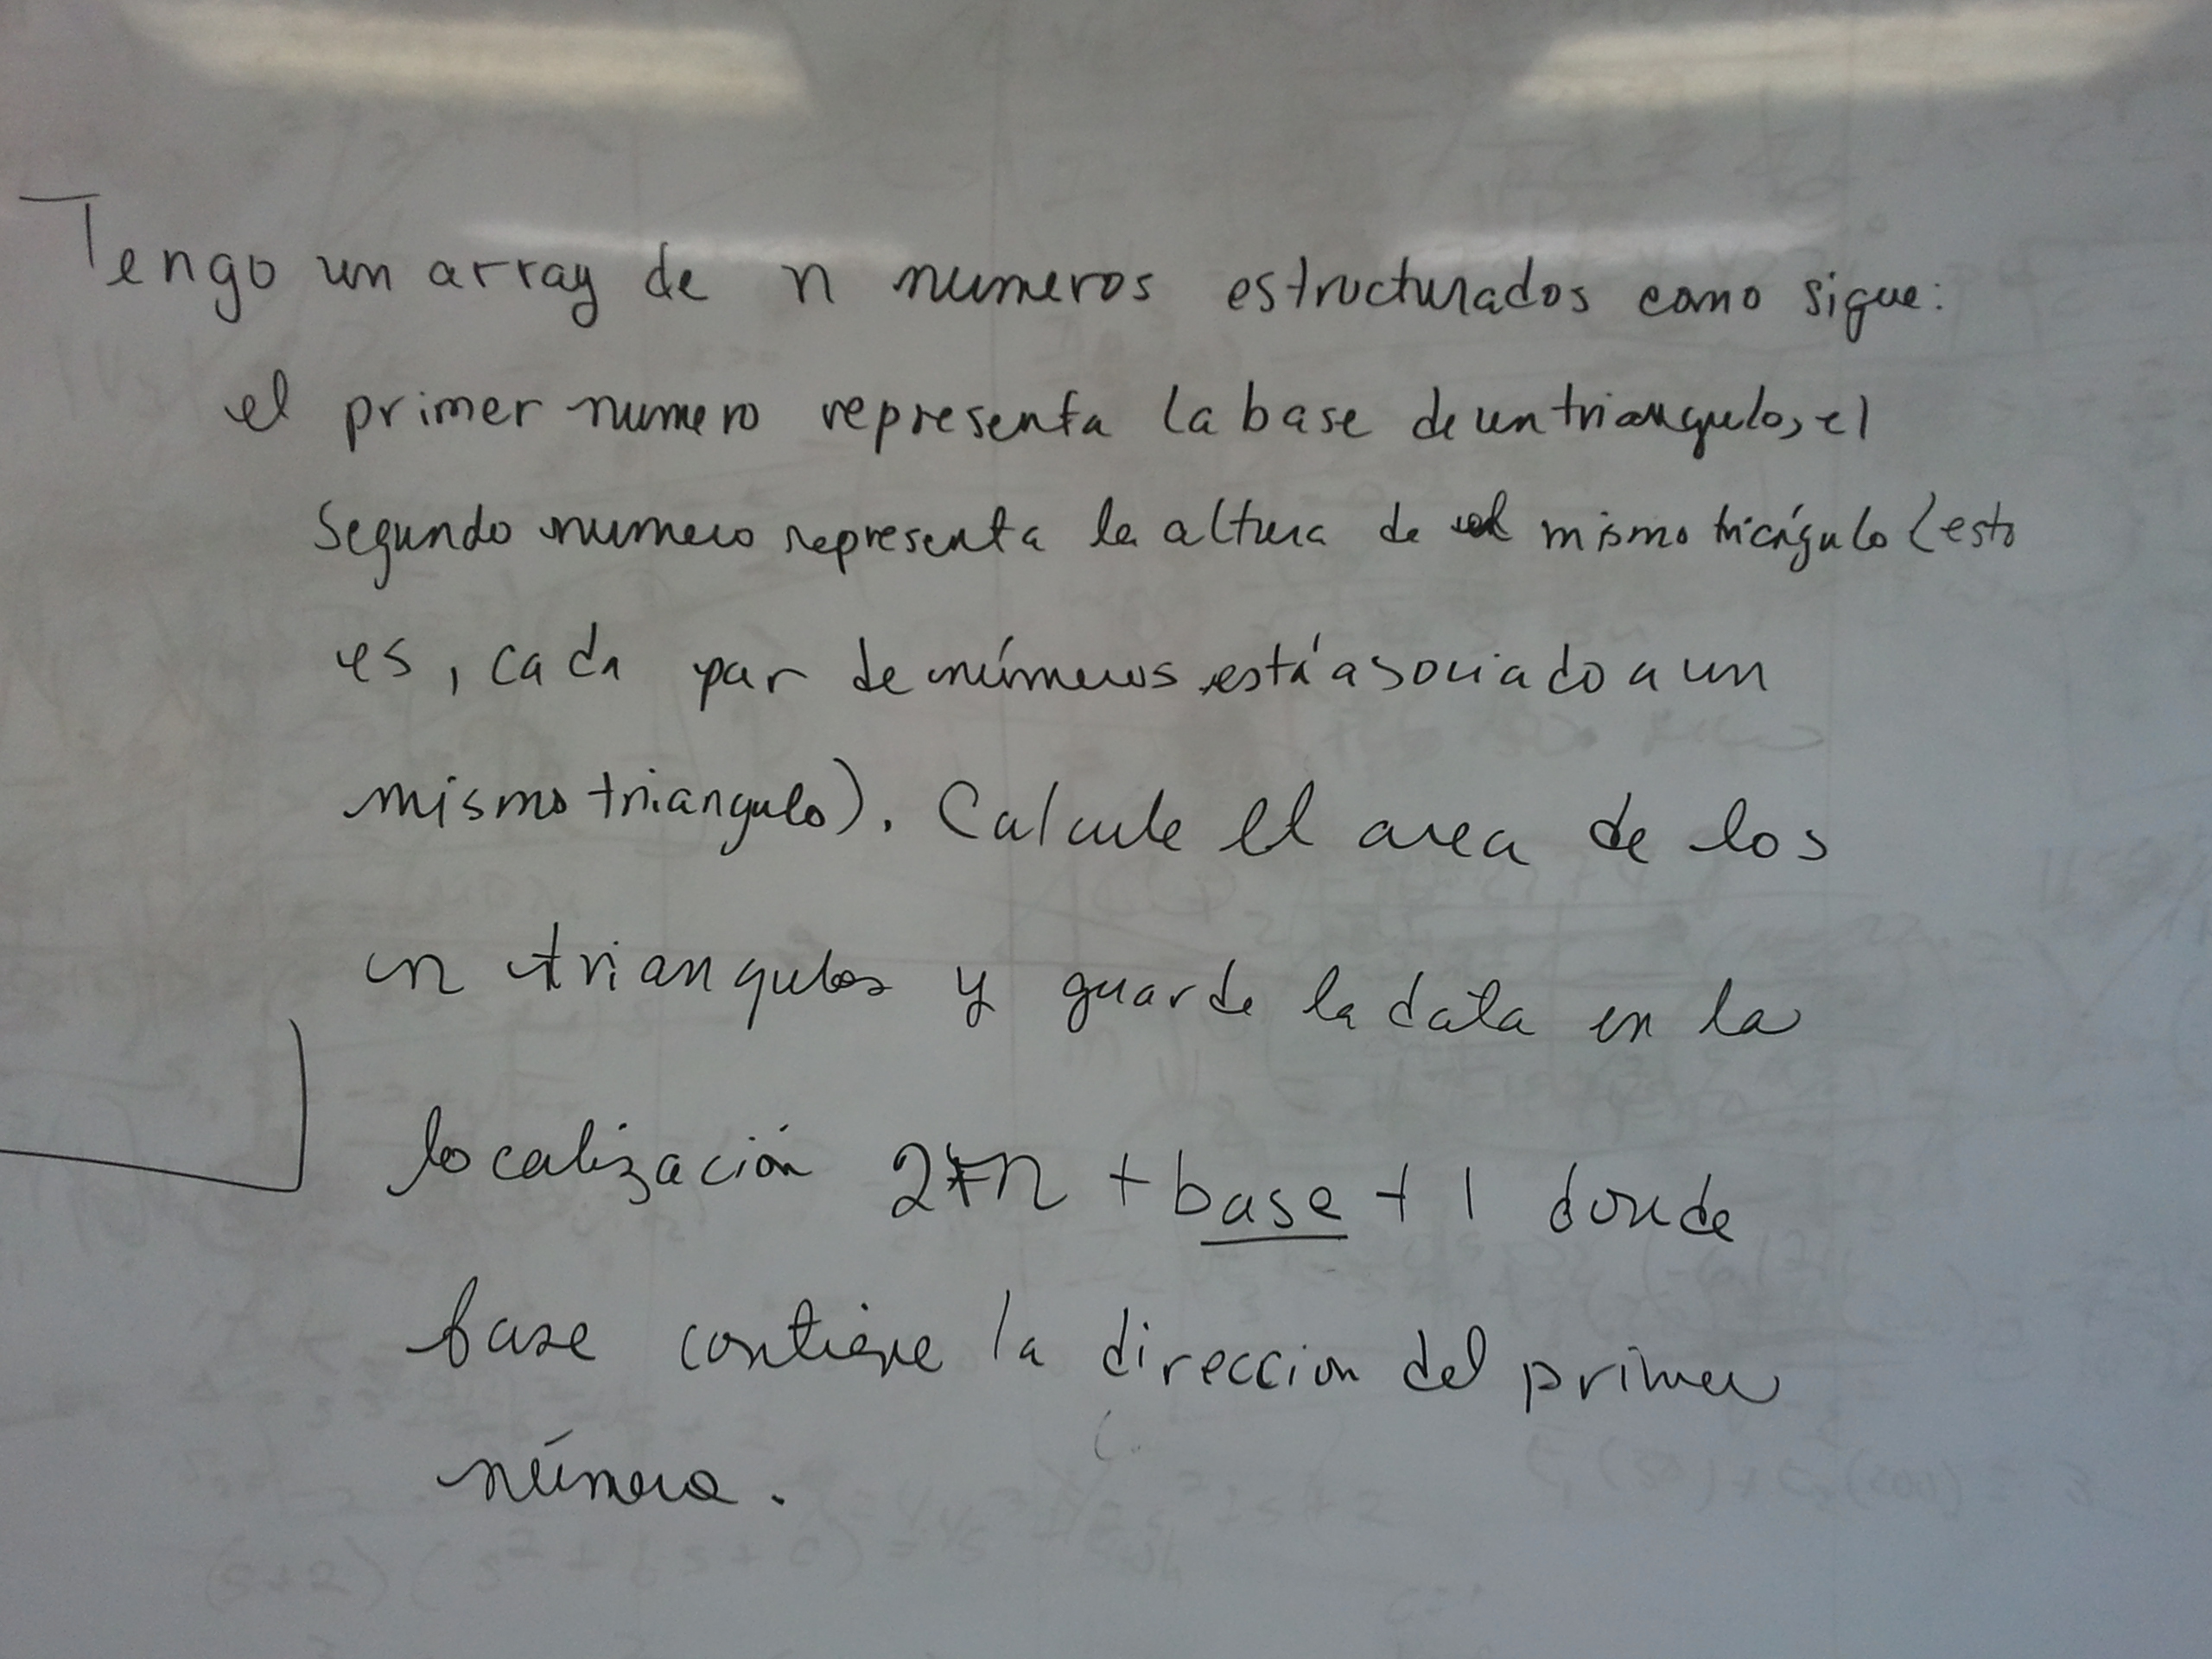 Tengo un array de n numeros estructurados como sigue:
el primer numero representa la base de un triangulo, el
Segundo numero representa la altura de el mismo triángulo (esto
es, cada par de números está asociado a un
mismo triangulo). Calcule el area de los
n triangulos y guarde la data en la
localización 2*n + base + 1 donde
base contiene la direccion del primer
número.